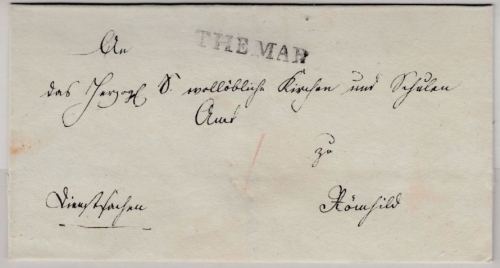 THEMAR
An
das Herzogl S. wollöbliche Kirchen und Schulen
Amt
zu
Dienstsachen
Römhild